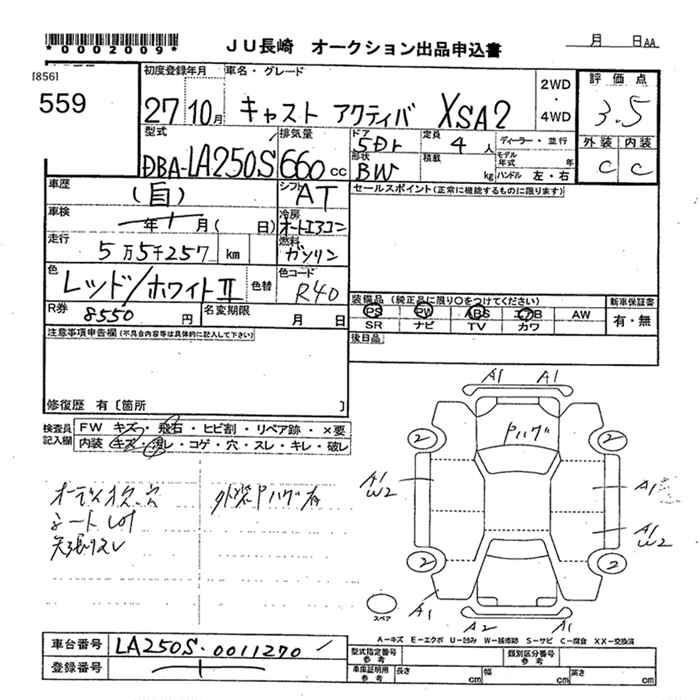 *0002009*
JU長崎 オークション出品申込書
月 日AA
[856]
559
初度登録年月 車名・グレード
27 10月 キャスト アクティバ XSA2
2WD
4WD
評価点
3.5
外装 内装
C C
型式 排気量
DBA-LA250S 660cc
ドア 5Dr 定員 4人 ディーラー・並行
形状 BW 積載 kg モデル年式 年
ハンドル 左・右
車歴 (自) シフト AT
セールスポイント(正常に機能するものに限ります)
車検 年 月( 日) 冷房 オートエアコン
走行 5万5千257 km 燃料 ガソリン
色 レッド/ホワイトⅡ 色替 色コード R40
R券 8550円 名変期限 月 日
装備品(純正品に限り○をつけてください) 新車保証書
PS PW ABS エアB AW 有・無
SR ナビ TV カワ
後日品
注意事項申告欄(不具合内容等は具体的に記入して下さい)
修復歴 有〔箇所 〕
検査員記入欄
FW キズ・飛石・ヒビ割・リペア跡・×要
内装 キズ・汚レ・コゲ・穴・スレ・キレ・破レ
オーディオ欠、穴
シートLot
外装Pハゲ有
天張リスレ
A1 A1
Pハゲ
2 2
A1
W2
A1
A1
W2
2 2
A1
A2 A1
スペア
A-キズ E-エクボ U-凹み W-補修跡 S-サビ C-腐食 XX-交換済
車台番号 LA250S-0011270
登録番号
型式指定番号 参考 類別区分番号 参考
車庫証明用 参考 長さ cm 幅 cm 高さ cm